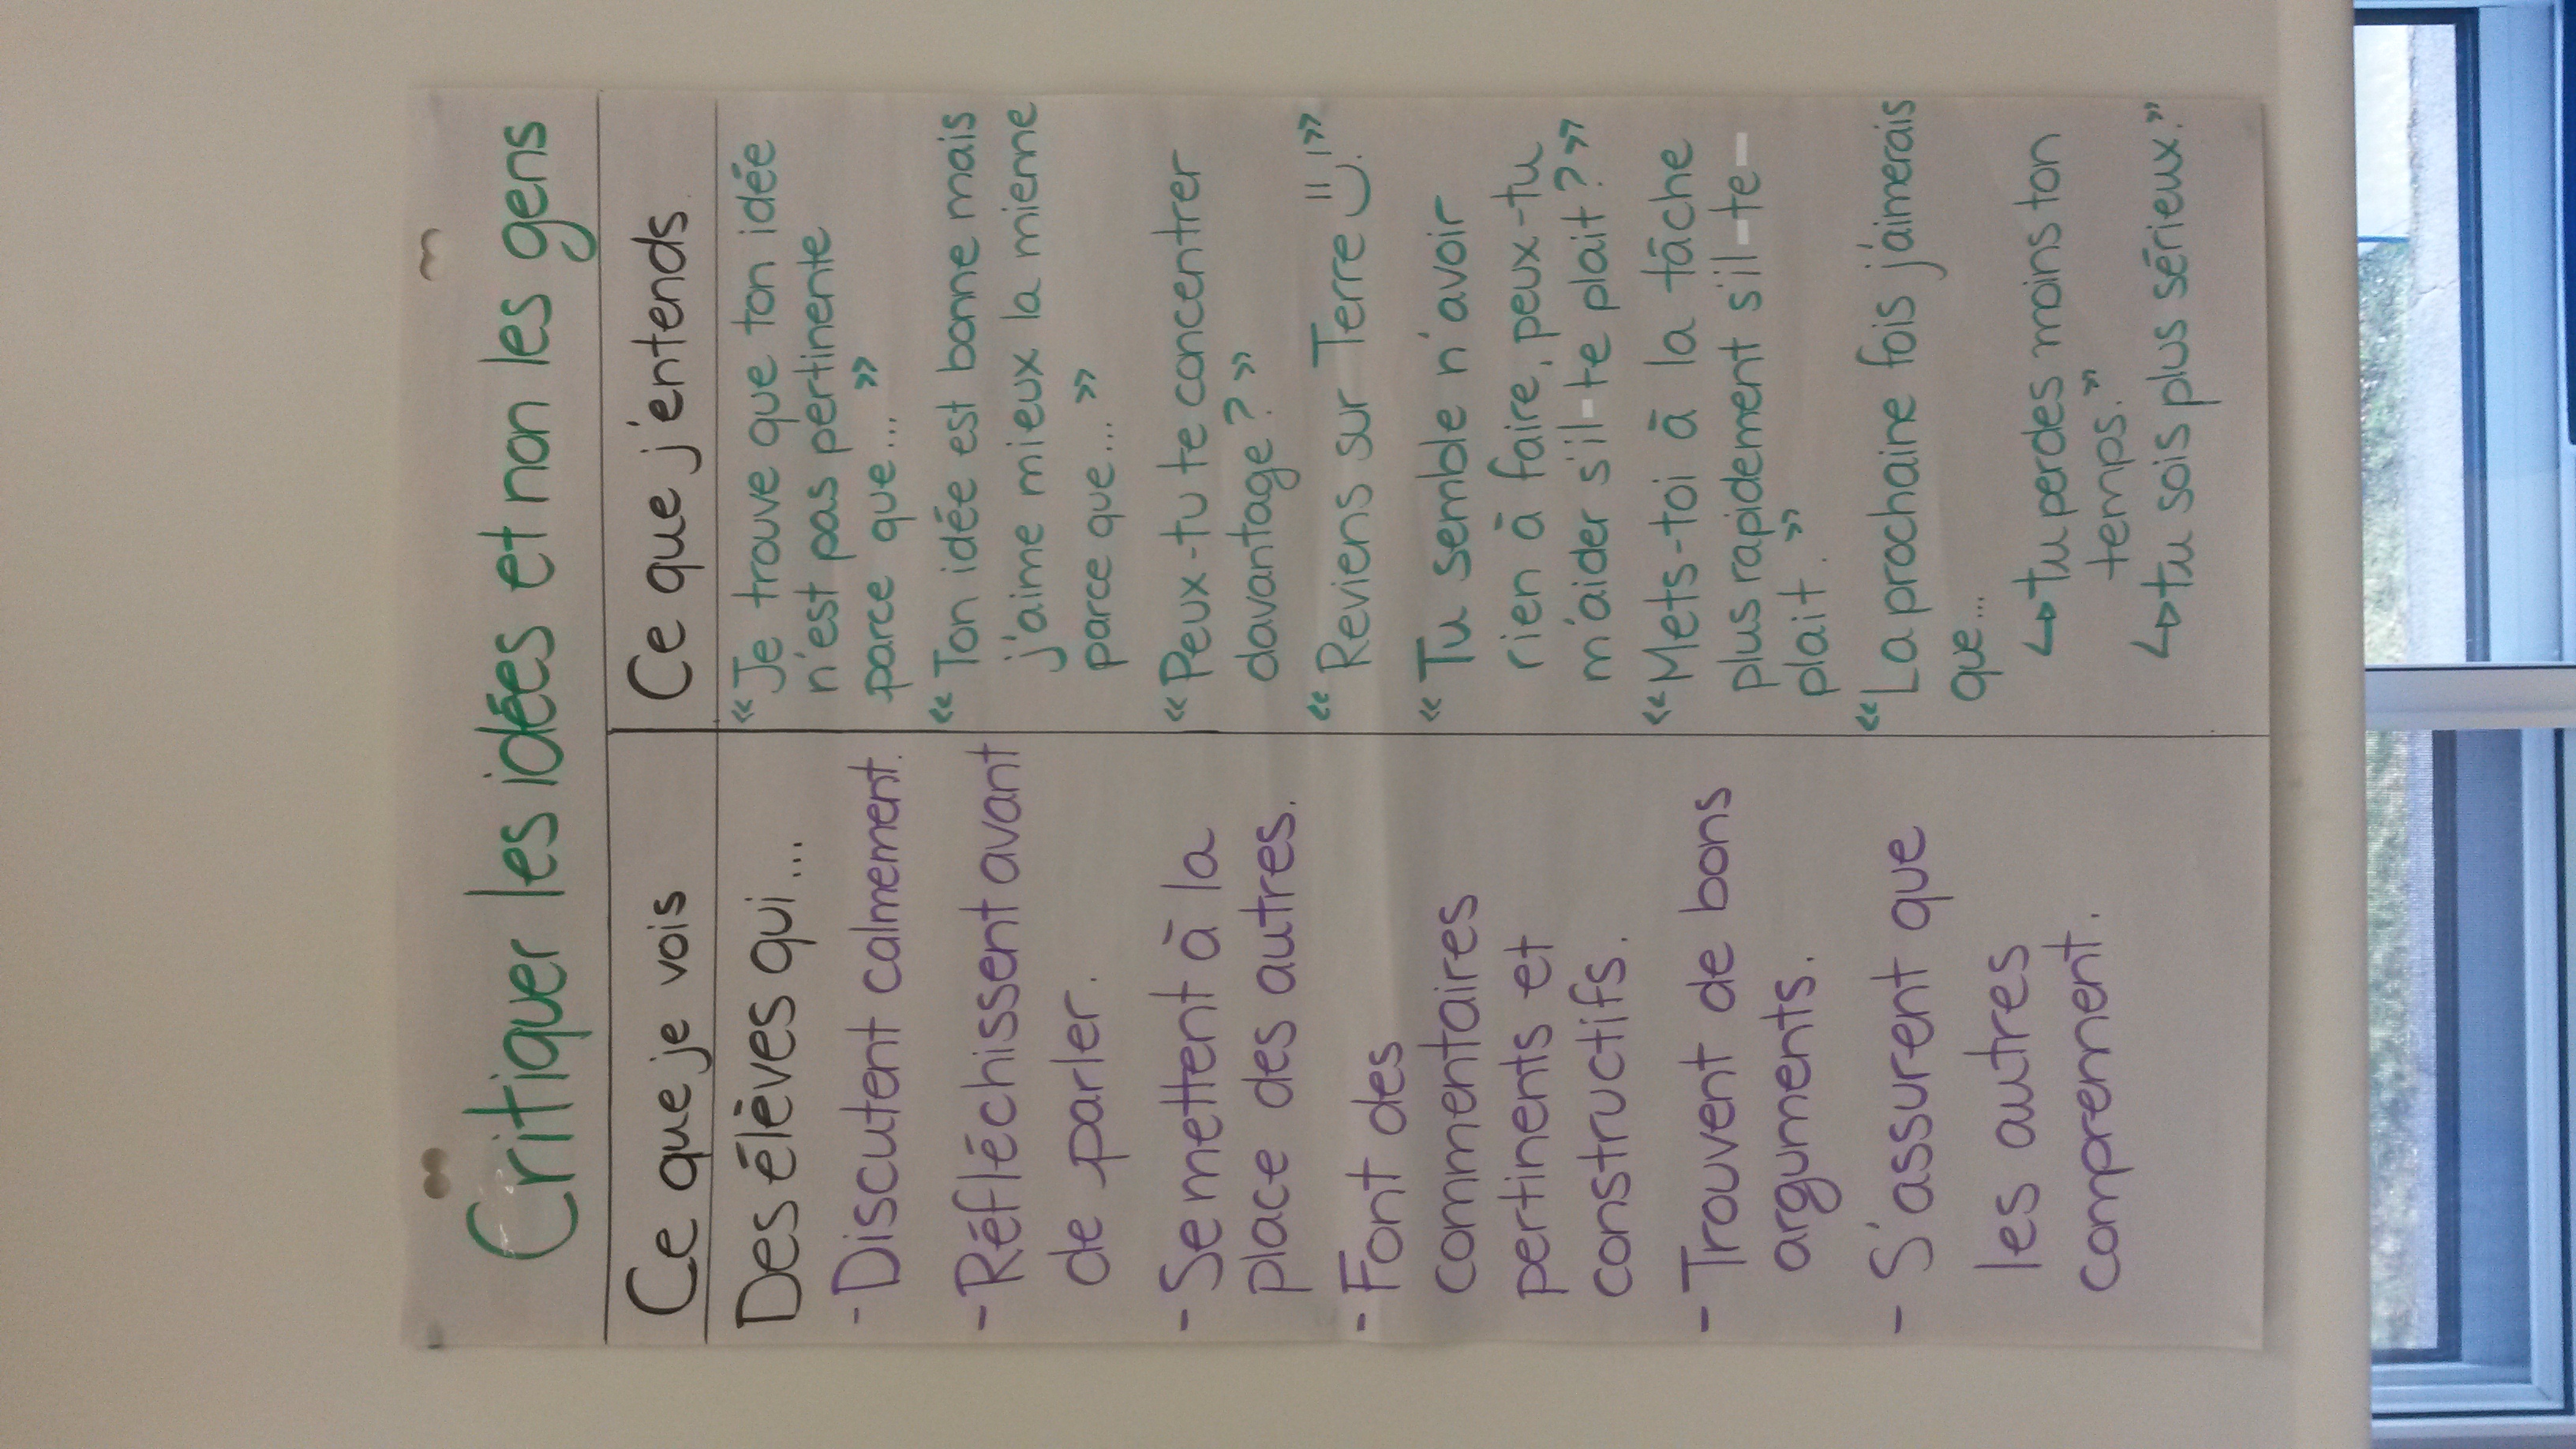 Critiquer les idées et non les gens
Ce que je vois
Des élèves qui...
- Discutent calmement.
- Réfléchissent avant
de parler.
- Se mettent à la
place des autres.
- Font des
commentaires
pertinents et
constructifs.
- Trouvent de bons
arguments.
- S'assurent que
les autres
comprennent.
Ce que j'entends.
« Je trouve que ton idée
n'est pas pertinente
parce que... »
« Ton idée est bonne mais
j'aime mieux la mienne
parce que... »
« Peux-tu te concentrer
davantage? »
« Reviens sur Terre. »
« Tu semble n'avoir
rien à faire, peux-tu
m'aider s'il-te plait? »
« Mets-toi à la tâche
plus rapidement s'il-te-
plait. »
« La prochaine fois j'aimerais
que...
↳ tu perdes moins ton
temps. »
↳ tu sois plus sérieux. »